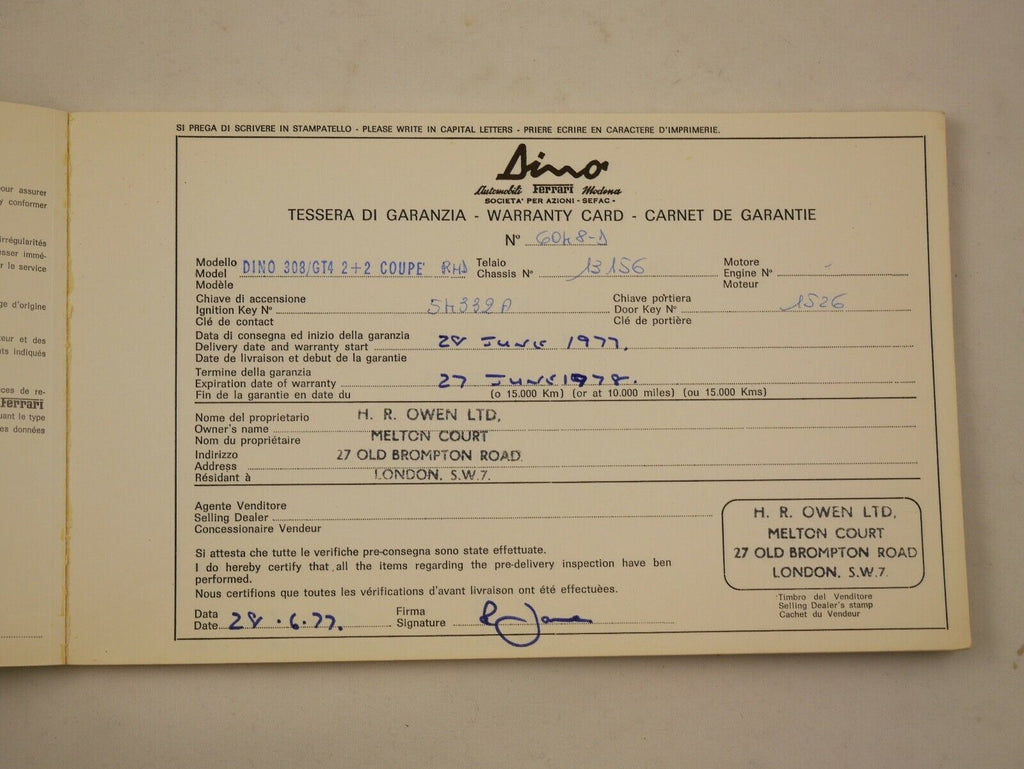 our assurer
y conformer
irrégularités
sser immé-
r le service
ge d'origine
eur et des
nts indiqués
ces de re-
Ferrari
uant le type
es données
SI PREGA DI SCRIVERE IN STAMPATELLO - PLEASE WRITE IN CAPITAL LETTERS - PRIERE ECRIRE EN CARACTERE D'IMPRIMERIE.
Dino
Automobili Ferrari Modena
SOCIETA' PER AZIONI - SEFAC -
TESSERA DI GARANZIA - WARRANTY CARD - CARNET DE GARANTIE
N° 6048-D
Modello
Model DINO 308/GT4 2+2 COUPE' RHD
Modèle
Telaio
Chassis N° 13156
Motore
Engine N° -
Moteur
Chiave di accensione
Ignition Key N° 54332A
Clé de contact
Chiave portiera
Door Key N° 1526
Clé de portière
Data di consegna ed inizio della garanzia
Delivery date and warranty start 28 JUNE 1977.
Date de livraison et debut de la garantie
Termine della garanzia
Expiration date of warranty 27 JUNE 1978.
Fin de la garantie en date du (o 15.000 Km) (or at 10.000 miles) (ou 15.000 Kms)
Nome del proprietario H. R. OWEN LTD,
Owner's name MELTON COURT
Nom du propriétaire
Indirizzo 27 OLD BROMPTON ROAD
Address
Résidant à LONDON. S.W.7.
Agente Venditore
Selling Dealer
Concessionaire Vendeur
H. R. OWEN LTD,
MELTON COURT
27 OLD BROMPTON ROAD
LONDON. S.W.7.
Timbro del Venditore
Selling Dealer's stamp
Cachet du Vendeur
Si attesta che tutte le verifiche pre-consegna sono state effettuate.
I do hereby certify that all the items regarding the pre-delivery inspection have ben
performed.
Nous certifions que toutes les vérifications d'avant livraison ont été effectuèes.
Data
Date 28.6.77.
Firma
Signature